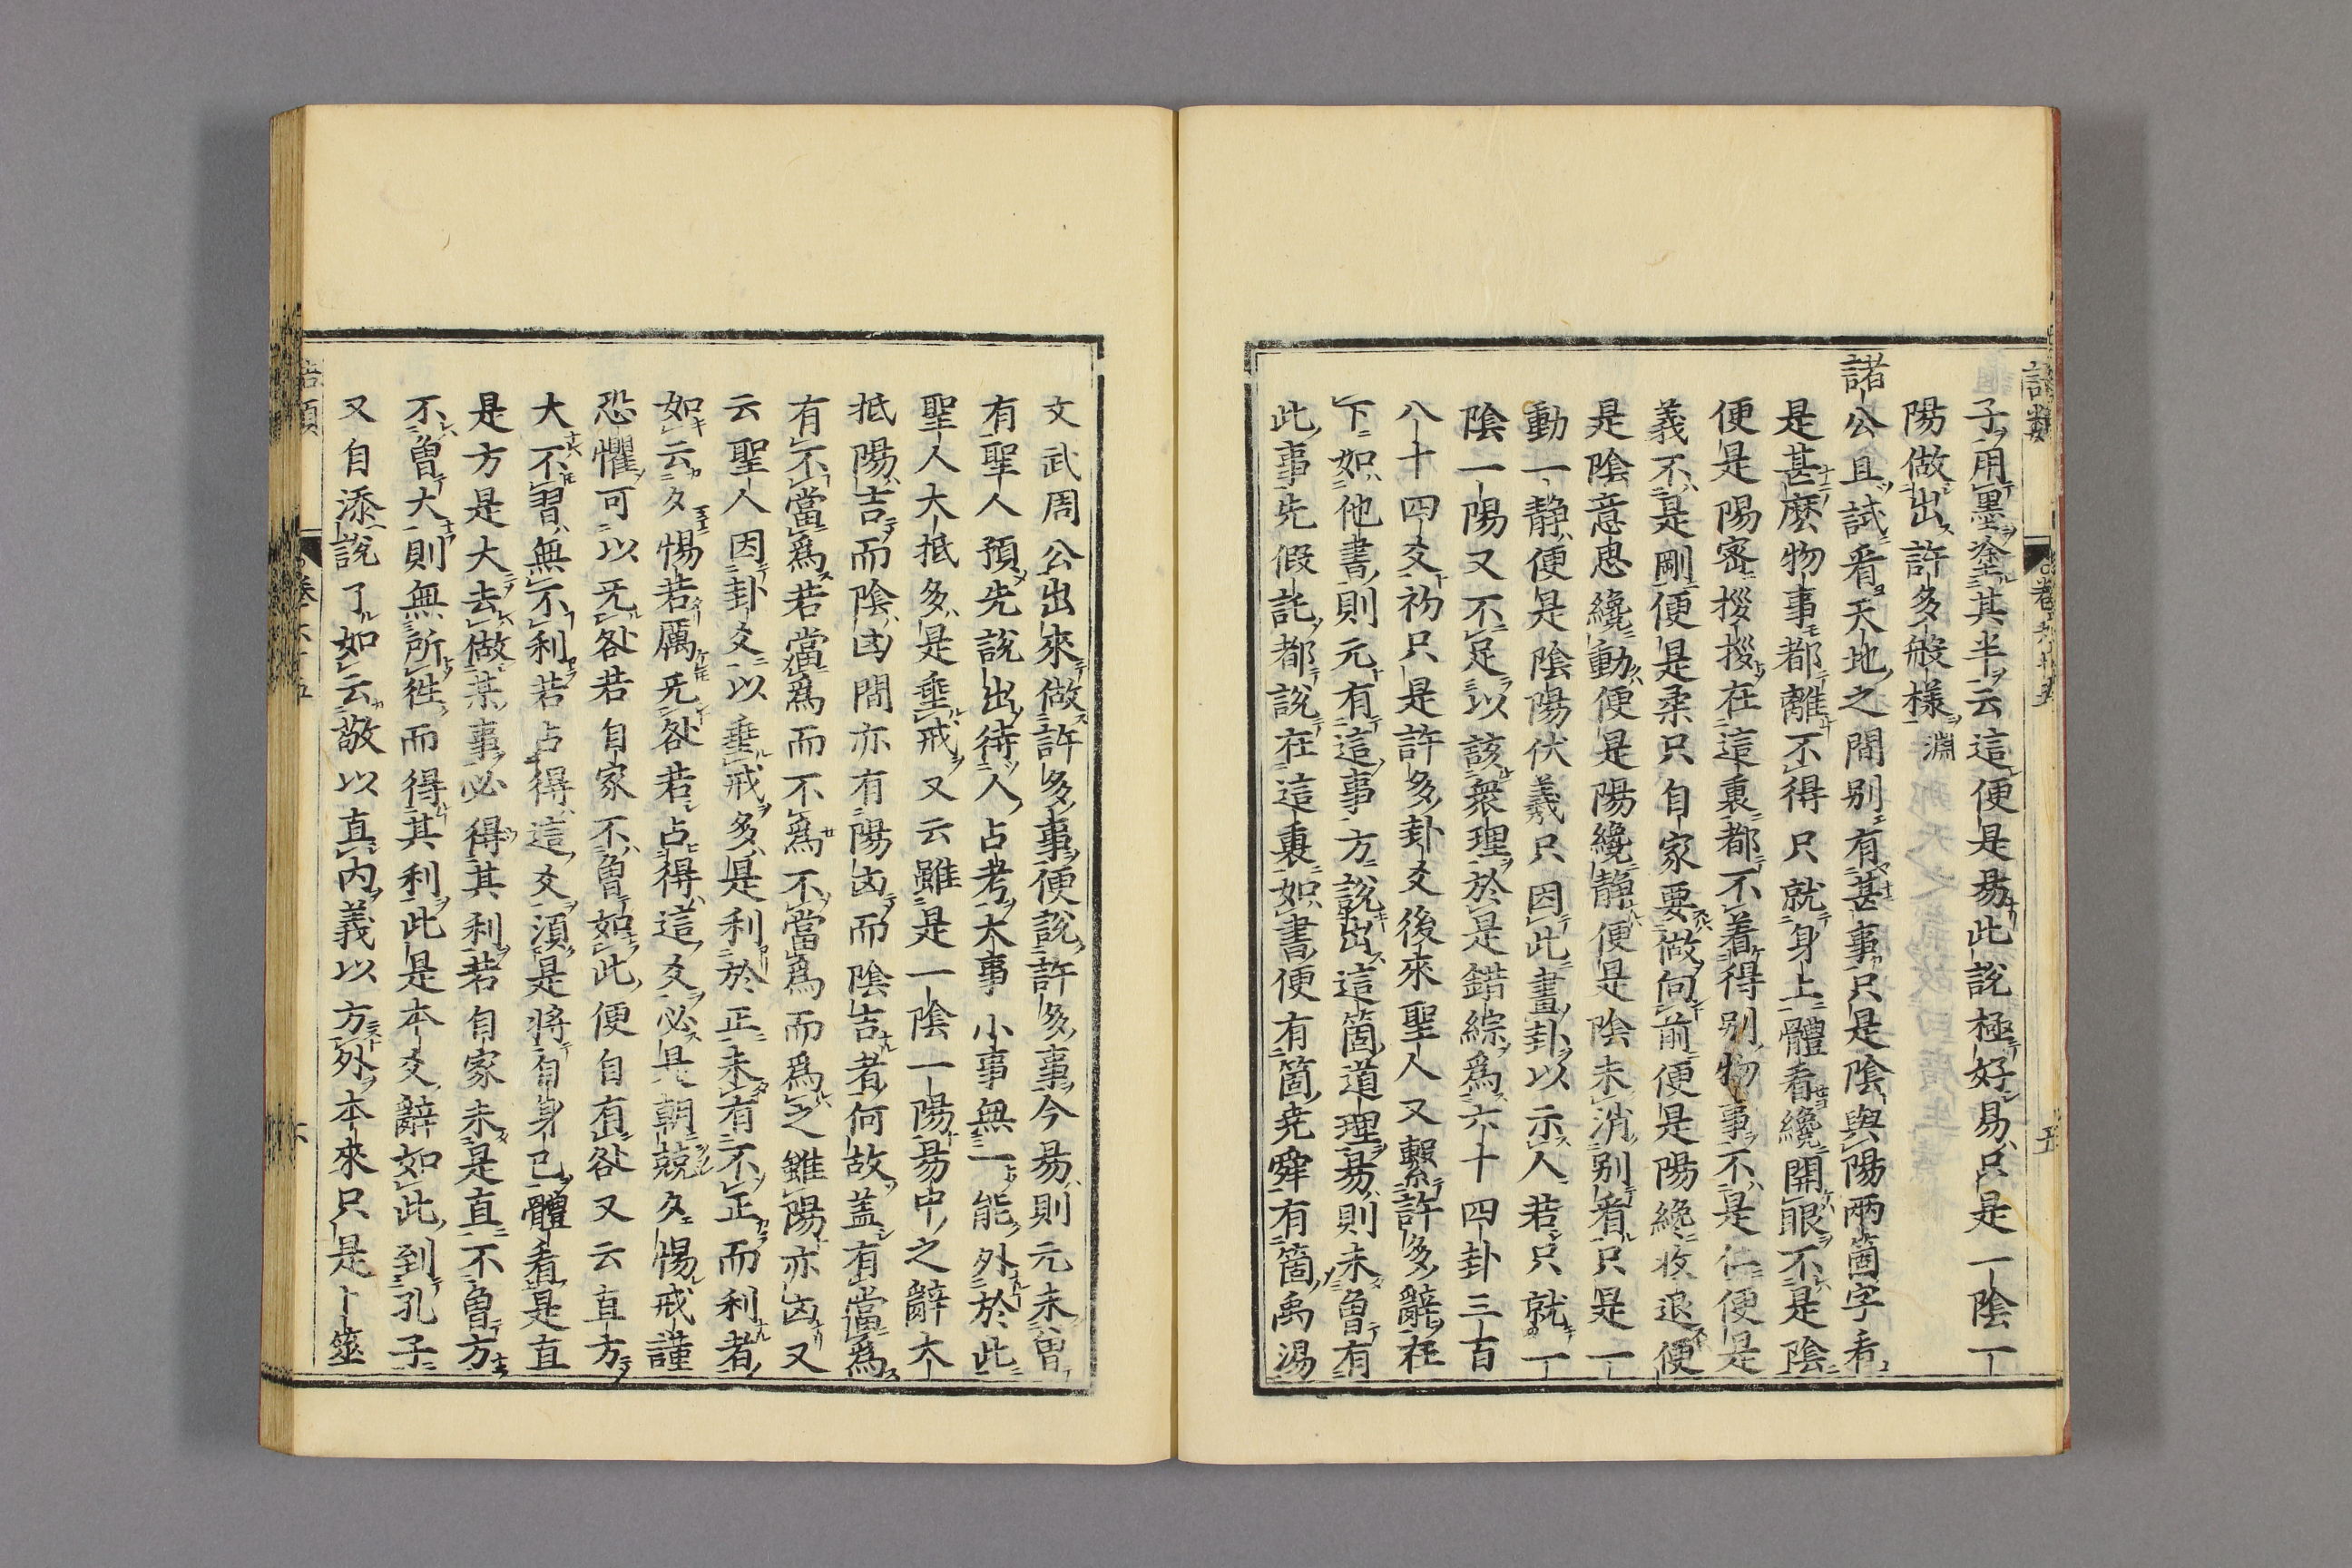 語類
卷六十五
五
子用墨塗其半云這便是易此說極好易只是一陰一
陽做出許多般樣 淵
諸公且試看天地之間別有甚事只是陰與陽兩箇字看
是甚麼物事都離不得只就身上體看纔開眼不是陰
便是陽密拶拶在這裏都不着得別物事不是仁便是
義不是剛便是柔只自家要做向前便是陽纔收退便
是陰意思纔動便是陽纔靜便是陰未消別看只是一
動一靜便是陰陽伏羲只因此畫卦以示人若只就一
陰一陽又不足以該衆理於是錯綜爲六十四卦三百
八十四爻初只是許多卦爻後來聖人又繫許多辭在
下如他書則元有這事方說出這箇道理易則未曾有
此事先假託都說在這裏如書便有箇尭舜有箇禹湯
文武周公出來做許多事便說許多事今易則元未曾
有聖人預先說出待人占考大事小事無一能外於此
聖人大抵多是埀戒又云雖是一陰一陽易中之辭大
抵陽吉而陰凶間亦有陽凶而陰吉者何故蓋有當爲
有不當爲若當爲而不爲不當爲而爲之雖陽亦凶又
云聖人因卦爻以垂戒多是利於正未有不正而利者
如云夕惕若厲无咎若占得這爻必是朝兢夕惕戒謹
恐懼可以无咎若自家不曾如此便自有咎又云直方
大不習無不利若占得這爻須是將自身己體看是直
是方是大去做某事必得其利若自家未是直不曾方
不曾大則無所徃而得其利此是本爻辭如此到孔子
又自添說了如云敬以直內義以方外本來只是卜筮
語類
六